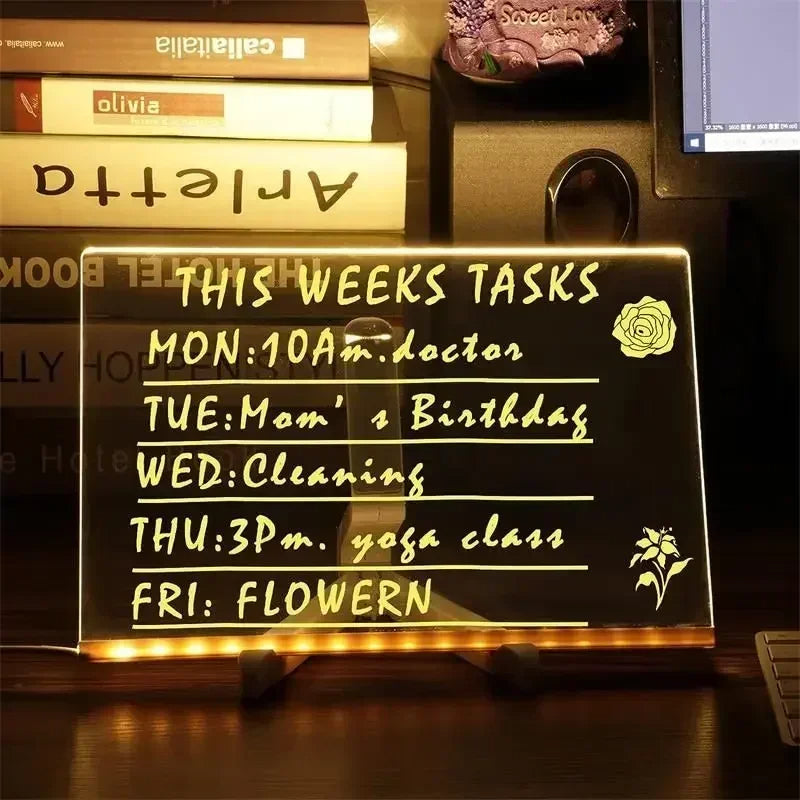 callaitalia
www.callaitalia.com
Sweet Love
olivia
Arletta
THE HOTEL BOOK
LLY HOPPEN STYL
e Hotel Book
37.32%
THIS WEEKS TASKS
MON:10Am.doctor
TUE:Mom's Birthdag
WED:Cleaning
THU:3Pm. yoga class
FRI: FLOWERN